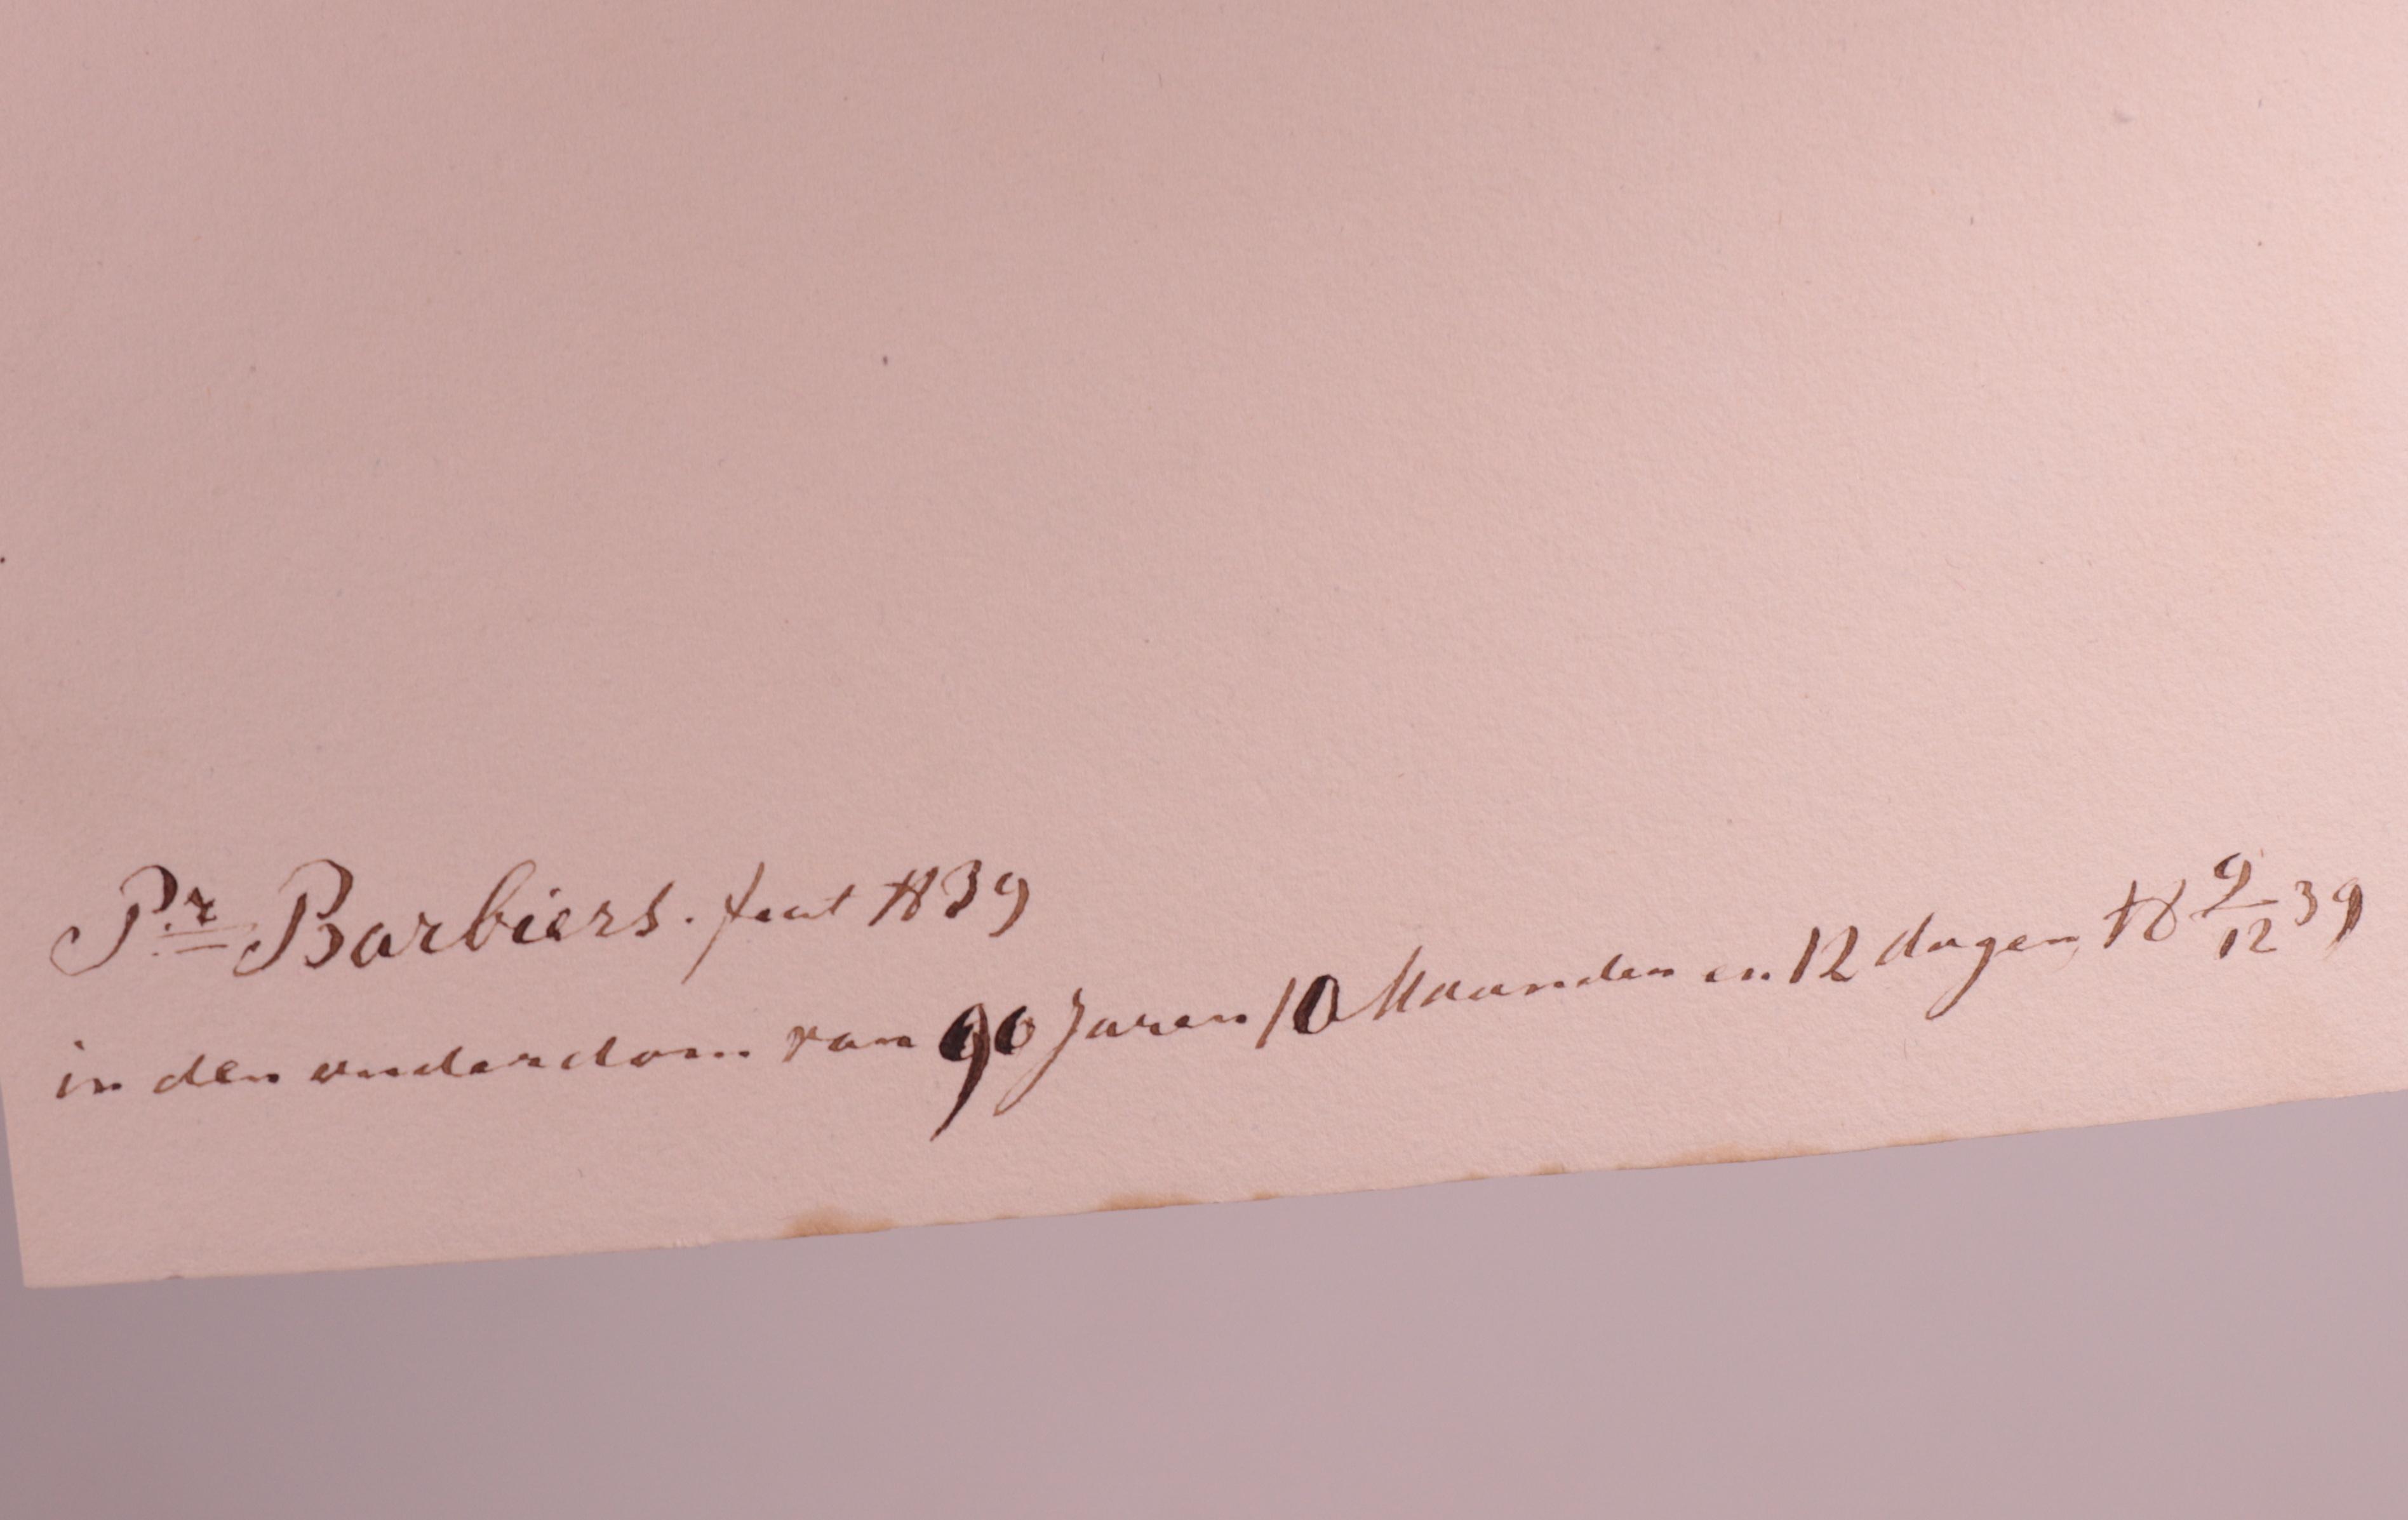 Pr Barbiers. fecit 1839
in den ouderdom van 90 Jaren 10 Maanden en 12 dagen, 18 9/12 39